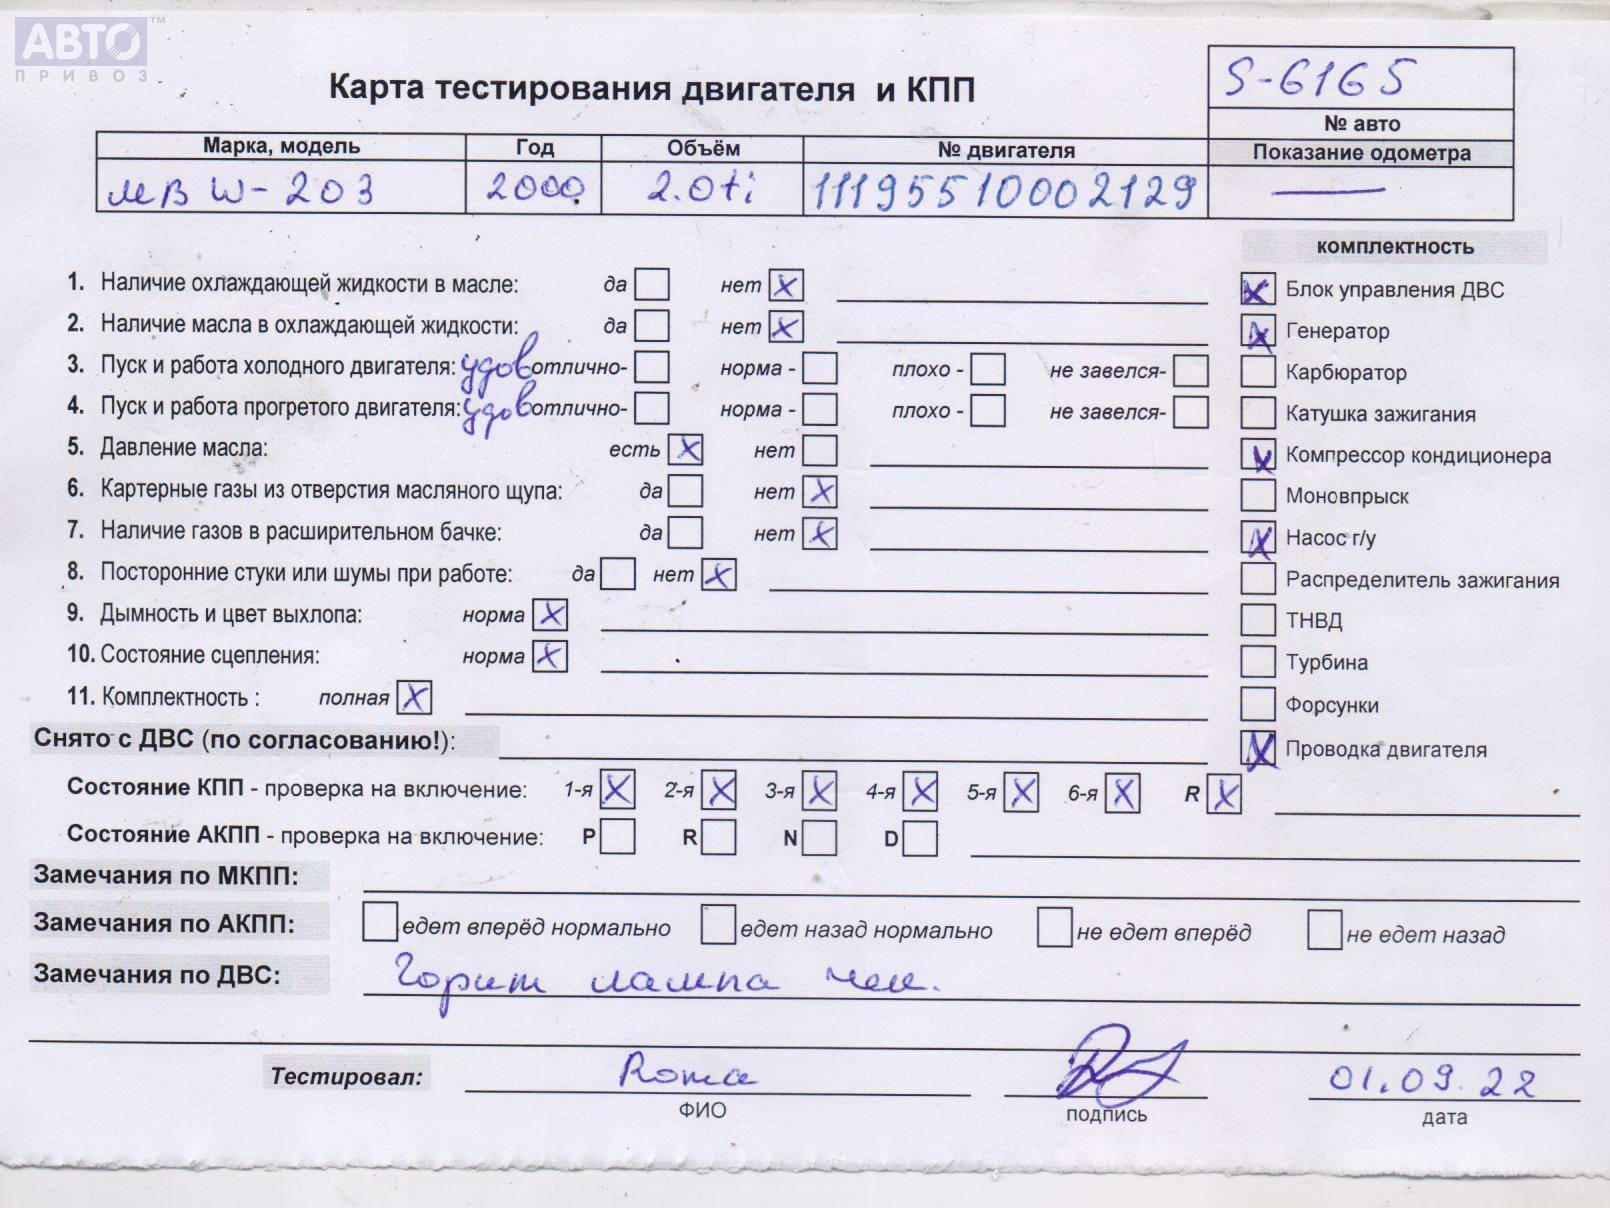 АВТО™
ПРИВОЗ
Карта тестирования двигателя и КПП
S-6165
№ авто
Марка, модель Год Объём № двигателя Показание одометра
МВ W-203 2000 2.0ti 11195510002129 —
комплектность
1. Наличие охлаждающей жидкости в масле: да нет X
Блок управления ДВС X
2. Наличие масла в охлаждающей жидкости: да нет X
Генератор X
3. Пуск и работа холодного двигателя: удов отлично- норма - плохо - не завелся-
Карбюратор
4. Пуск и работа прогретого двигателя: удов отлично- норма - плохо - не завелся-
Катушка зажигания
5. Давление масла: есть X нет
Компрессор кондиционера X
6. Картерные газы из отверстия масляного щупа: да нет X
Моновпрыск
7. Наличие газов в расширительном бачке: да нет X
Насос г/у X
8. Посторонние стуки или шумы при работе: да нет X
Распределитель зажигания
9. Дымность и цвет выхлопа: норма X
ТНВД
10. Состояние сцепления: норма X
Турбина
11. Комплектность : полная X
Форсунки
Снято с ДВС (по согласованию!):
Проводка двигателя X
Состояние КПП - проверка на включение: 1-я X 2-я X 3-я X 4-я X 5-я X 6-я X R X
Состояние АКПП - проверка на включение: P R N D
Замечания по МКПП:
Замечания по АКПП: едет вперёд нормально едет назад нормально не едет вперёд не едет назад
Замечания по ДВС: Горит лампа чек.
Тестировал: Roma 01.09.22
ФИО подпись дата